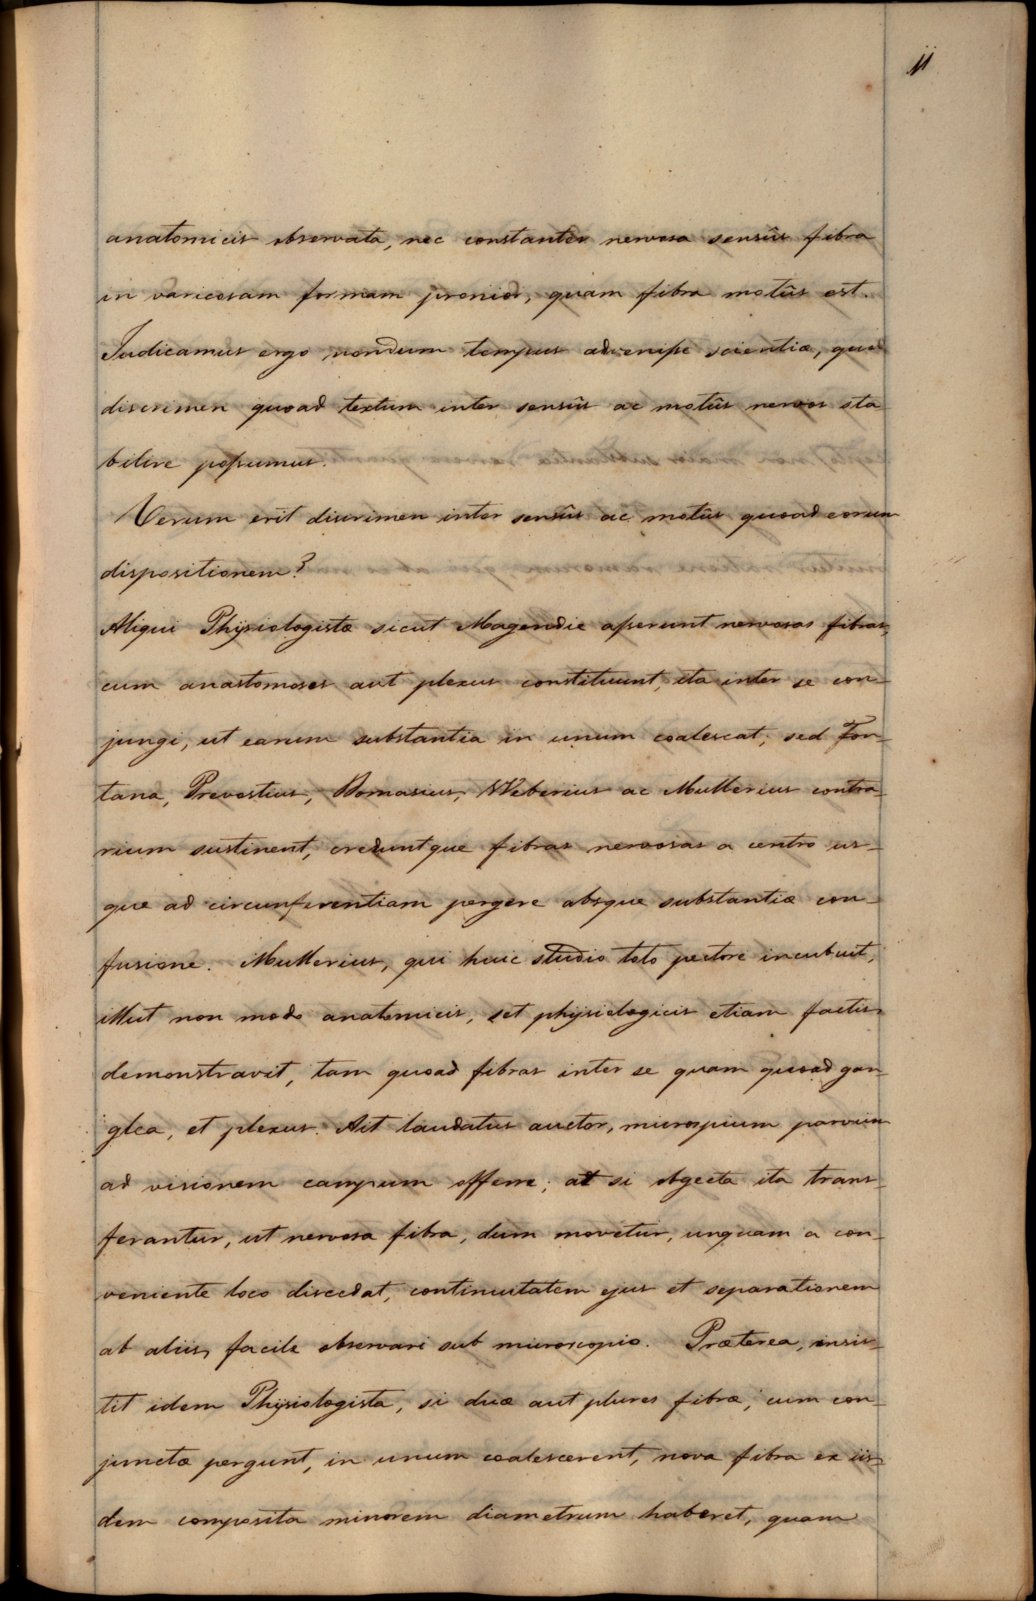 11
anatomicis observata, nec constanter nervosa sensûs fibra
in varicosam formam pronior, quam fibra motûs est.
Judicamus ergo nondum tempus advenisse scientiæ, quo
discrimen quoad textum inter sensûs ac motûs nervos sta
bilire possumus.
Verum erit discrimen inter sensûs ac motûs quoad eorum
dispositionem?
Aliqui Physiologistæ sicut Magendie asserunt nervosas fibras,
cum anastomoses aut plexus constituunt, ita inter se con-
jungi, ut earum substantia in unum coalescat; sed Fon-
tana, Prevostius, Domasius, Weberius ac Mullerius contra-
rium sustinent, creduntque fibras nervosas a centro us-
que ad circunferentiam pergere absque substantiæ con-
fusione. Mullerius, qui huic studio toto pectore incubuit,
illut non modo anatomicis, set physiologicis etiam factis
demonstravit, tam quoad fibras inter se quam quoad gan
glea, et plexus. Ait laudatus auctor, microspium parvum
ad visionem campum offerre; at si obgecta ita trans-
ferantur, ut nervosa fibra, dum movetur, unquam a con-
veniente loco discedat, continuitatem ejus et separationem
ab aliis, facile observari sub microscopio. Præterea, insis-
tit idem Physiologista, si duæ aut plures fibræ, cum con-
junctæ pergunt, in unum coalescerent, nova fibra ex iis-
dem composita minorem diametrum haberet, quam